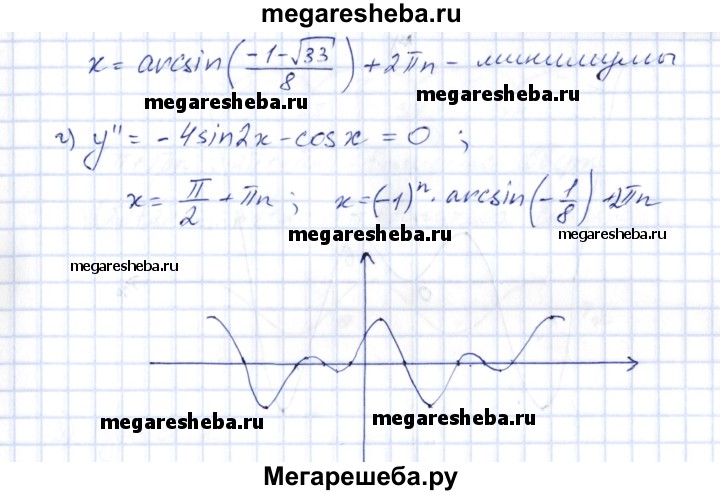 megaresheba.ru
x = arcsin((-1-√33)/8) + 2πn - минимумы
megaresheba.ru megaresheba.ru
г) y'' = -4sin2x - cosx = 0 ;
x = π/2 + πn ; x = (-1)ⁿ · arcsin(-1/8) + 2πn
megaresheba.ru megaresheba.ru
megaresheba.ru
megaresheba.ru megaresheba.ru
Мегарешеба.ру